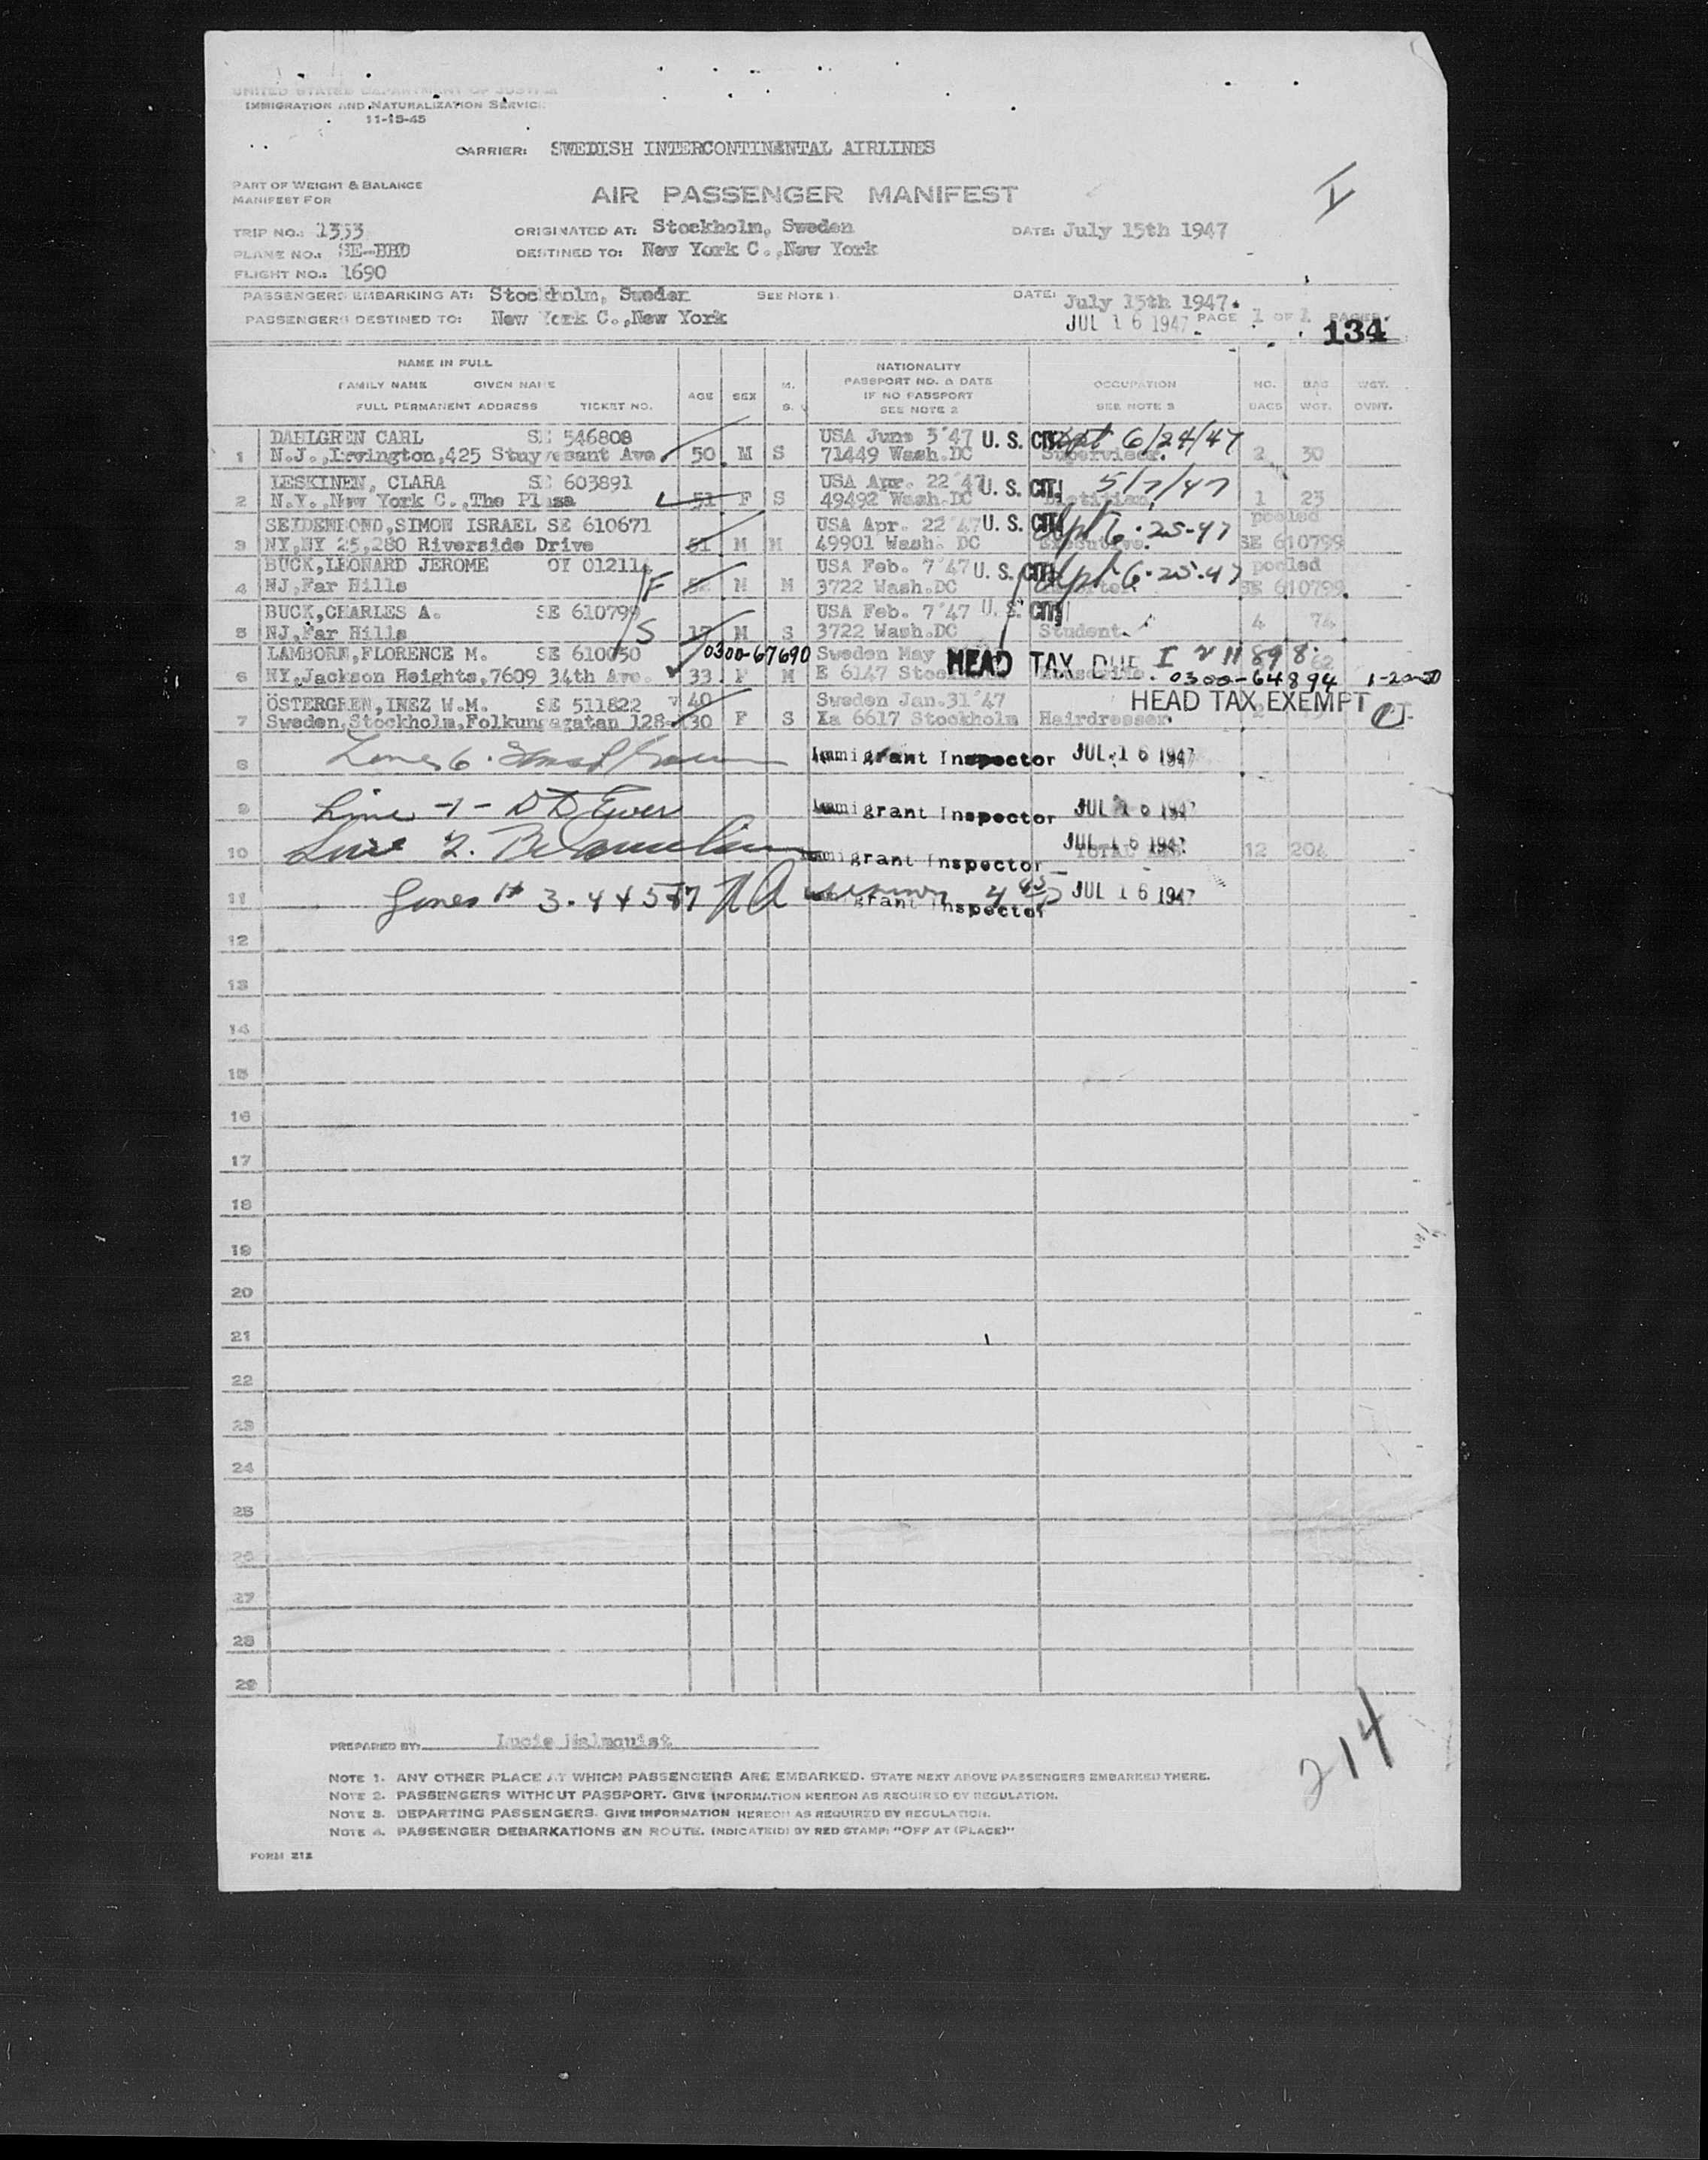 UNITED STATES DEPARTMENT OF JUSTICE
IMMIGRATION AND NATURALIZATION SERVICE
11-15-45
CARRIER: SWEDISH INTERCONTINENTAL AIRLINES
PART OF WEIGHT & BALANCE
MANIFEST FOR
AIR PASSENGER MANIFEST
I
TRIP NO.: 1353 ORIGINATED AT: Stockholm, Sweden DATE: July 15th 1947
PLANE NO.: SE-BBD DESTINED TO: New York C.,New York
FLIGHT NO.: 1690
PASSENGERS EMBARKING AT: Stockholm, Sweden SEE NOTE 1 DATE: July 15th 1947.
PASSENGERS DESTINED TO: New York C.,New York JUL 16 1947 PAGE 1 OF 1 PAGES.
134
NAME IN FULL
FAMILY NAME GIVEN NAME
FULL PERMANENT ADDRESS TICKET NO.
AGE SEX M. S.
NATIONALITY
PASSPORT NO. & DATE
IF NO PASSPORT
SEE NOTE 2
OCCUPATION
SEE NOTE 3
NO. BAGS
BAG WGT.
WGT. OVNT.
DAHLGREN CARL SE 546808 USA June 3'47 U. S. CIT. 6/24/47
1 N.J.,Irvington,425 Stuyvesant Ave 50 M S 71449 Wash.DC Supervisor. 2 30
LESKINEN, CLARA SE 603891 USA Apr. 22'47 U. S. CIT. 5/7/47
2 N.Y.,New York C.,The Plaza 51 F S 49492 Wash.DC Dietitian. 1 23
SEIDENBOND,SIMON ISRAEL SE 610671 USA Apr. 22'47 U. S. CIT. 6-25-47 pooled
3 NY,NY 25,280 Riverside Drive 51 M M 49901 Wash. DC Executive. SE 610799
BUCK,LEONARD JEROME OY 012114 USA Feb. 7'47 U. S. CIT. 6-25-47 pooled
4 NJ,Far Hills F M M 3722 Wash.DC SE 610799
BUCK,CHARLES A. SE 610799 USA Feb. 7'47 U. S. CIT.
5 NJ,Far Hills S 17 M S 3722 Wash.DC Student. 4 74
LAMBORN,FLORENCE M. SE 610050 0300-67690 Sweden May HEAD TAX DUE
6 NY,Jackson Heights,7609 34th Ave. 33 F M E 6147 0300-64894 62
HEAD TAX EXEMPT
ÖSTERGREN,INEZ W.M. SE 511822 40 Sweden Jan.31'47
7 Sweden,Stockholm,Folkungagatan 128 30 F S Xa 6617 Stockholm Hairdresser. 2
8 Immigrant Inspector JUL 16 1947
9 Line -1- Immigrant Inspector JUL 16 1947
10 Line 2. Immigrant Inspector JUL 16 1947 12 204
11 Lines # 3.4 + 5 Immigrant Inspector JUL 16 1947
12
13
14
15
16
17
18
19
20
21
22
23
24
25
26
27
28
29
214
PREPARED BY: Lucie Malmquist
NOTE 1. ANY OTHER PLACE AT WHICH PASSENGERS ARE EMBARKED. STATE NEXT ABOVE PASSENGERS EMBARKED THERE.
NOTE 2. PASSENGERS WITHOUT PASSPORT. GIVE INFORMATION HEREON AS REQUIRED BY REGULATION.
NOTE 3. DEPARTING PASSENGERS. GIVE INFORMATION HEREON AS REQUIRED BY REGULATION.
NOTE 4. PASSENGER DEBARKATIONS EN ROUTE. INDICATE(D) BY RED STAMP: "OFF AT (PLACE)"
FORM 212